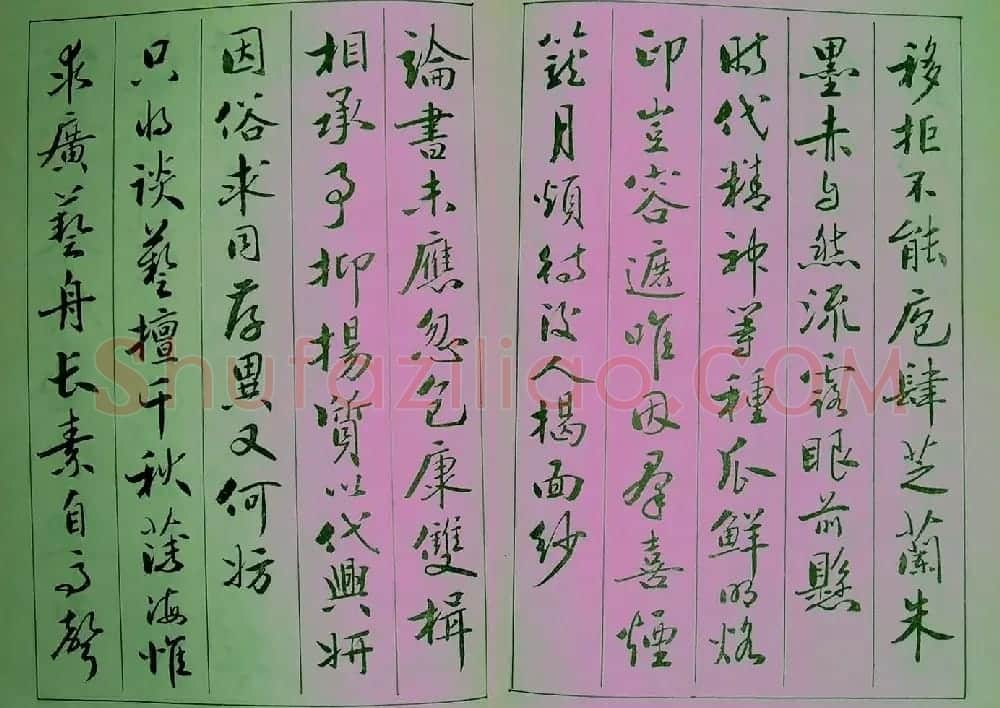 移拒不能庖肆芝蘭朱
墨赤与然流露眼前懸
時代精神等種瓜鮮明烙
印豈容遮唯因群喜煙
籠月煩待後人揭面紗
論書未應忽包康雙楫
相承予抑揚質以代興妍
因俗求同存異又何妨
只將谈藝擅千秋藩海惟
求廣藝舟长素自高聲
Shufaziliao.COM